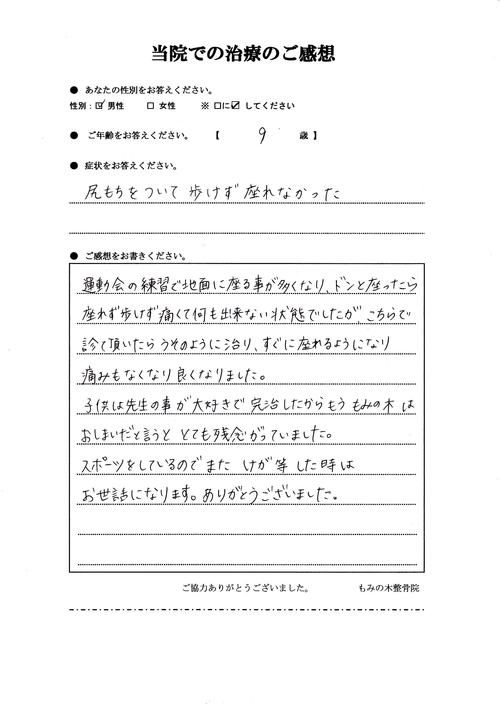 当院での治療のご感想
● あなたの性別をお答えください。
性別：☑ 男性 □ 女性 ※ □に☑ してください
● ご年齢をお答えください。 【 9 歳 】
● 症状をお答えください。
尻もちをついて 歩けず 座れなかった
● ご感想をお書きください。
運動会の練習で地面に座る事が多くなり、ドンと座ったら
座れず歩けず痛くて何も出来ない状態でしたが、こちらで
診て頂いたら うそのように治り、すぐに座れるようになり
痛みもなくなり良くなりました。
子供は先生の事が大好きで 完治したからもう もみの木 は
おしまいだと言うと とても残念がっていました。
スポーツをしているのでまた けが等 した時は
お世話になります。ありがとうございました。
ご協力ありがとうございました。 もみの木整骨院